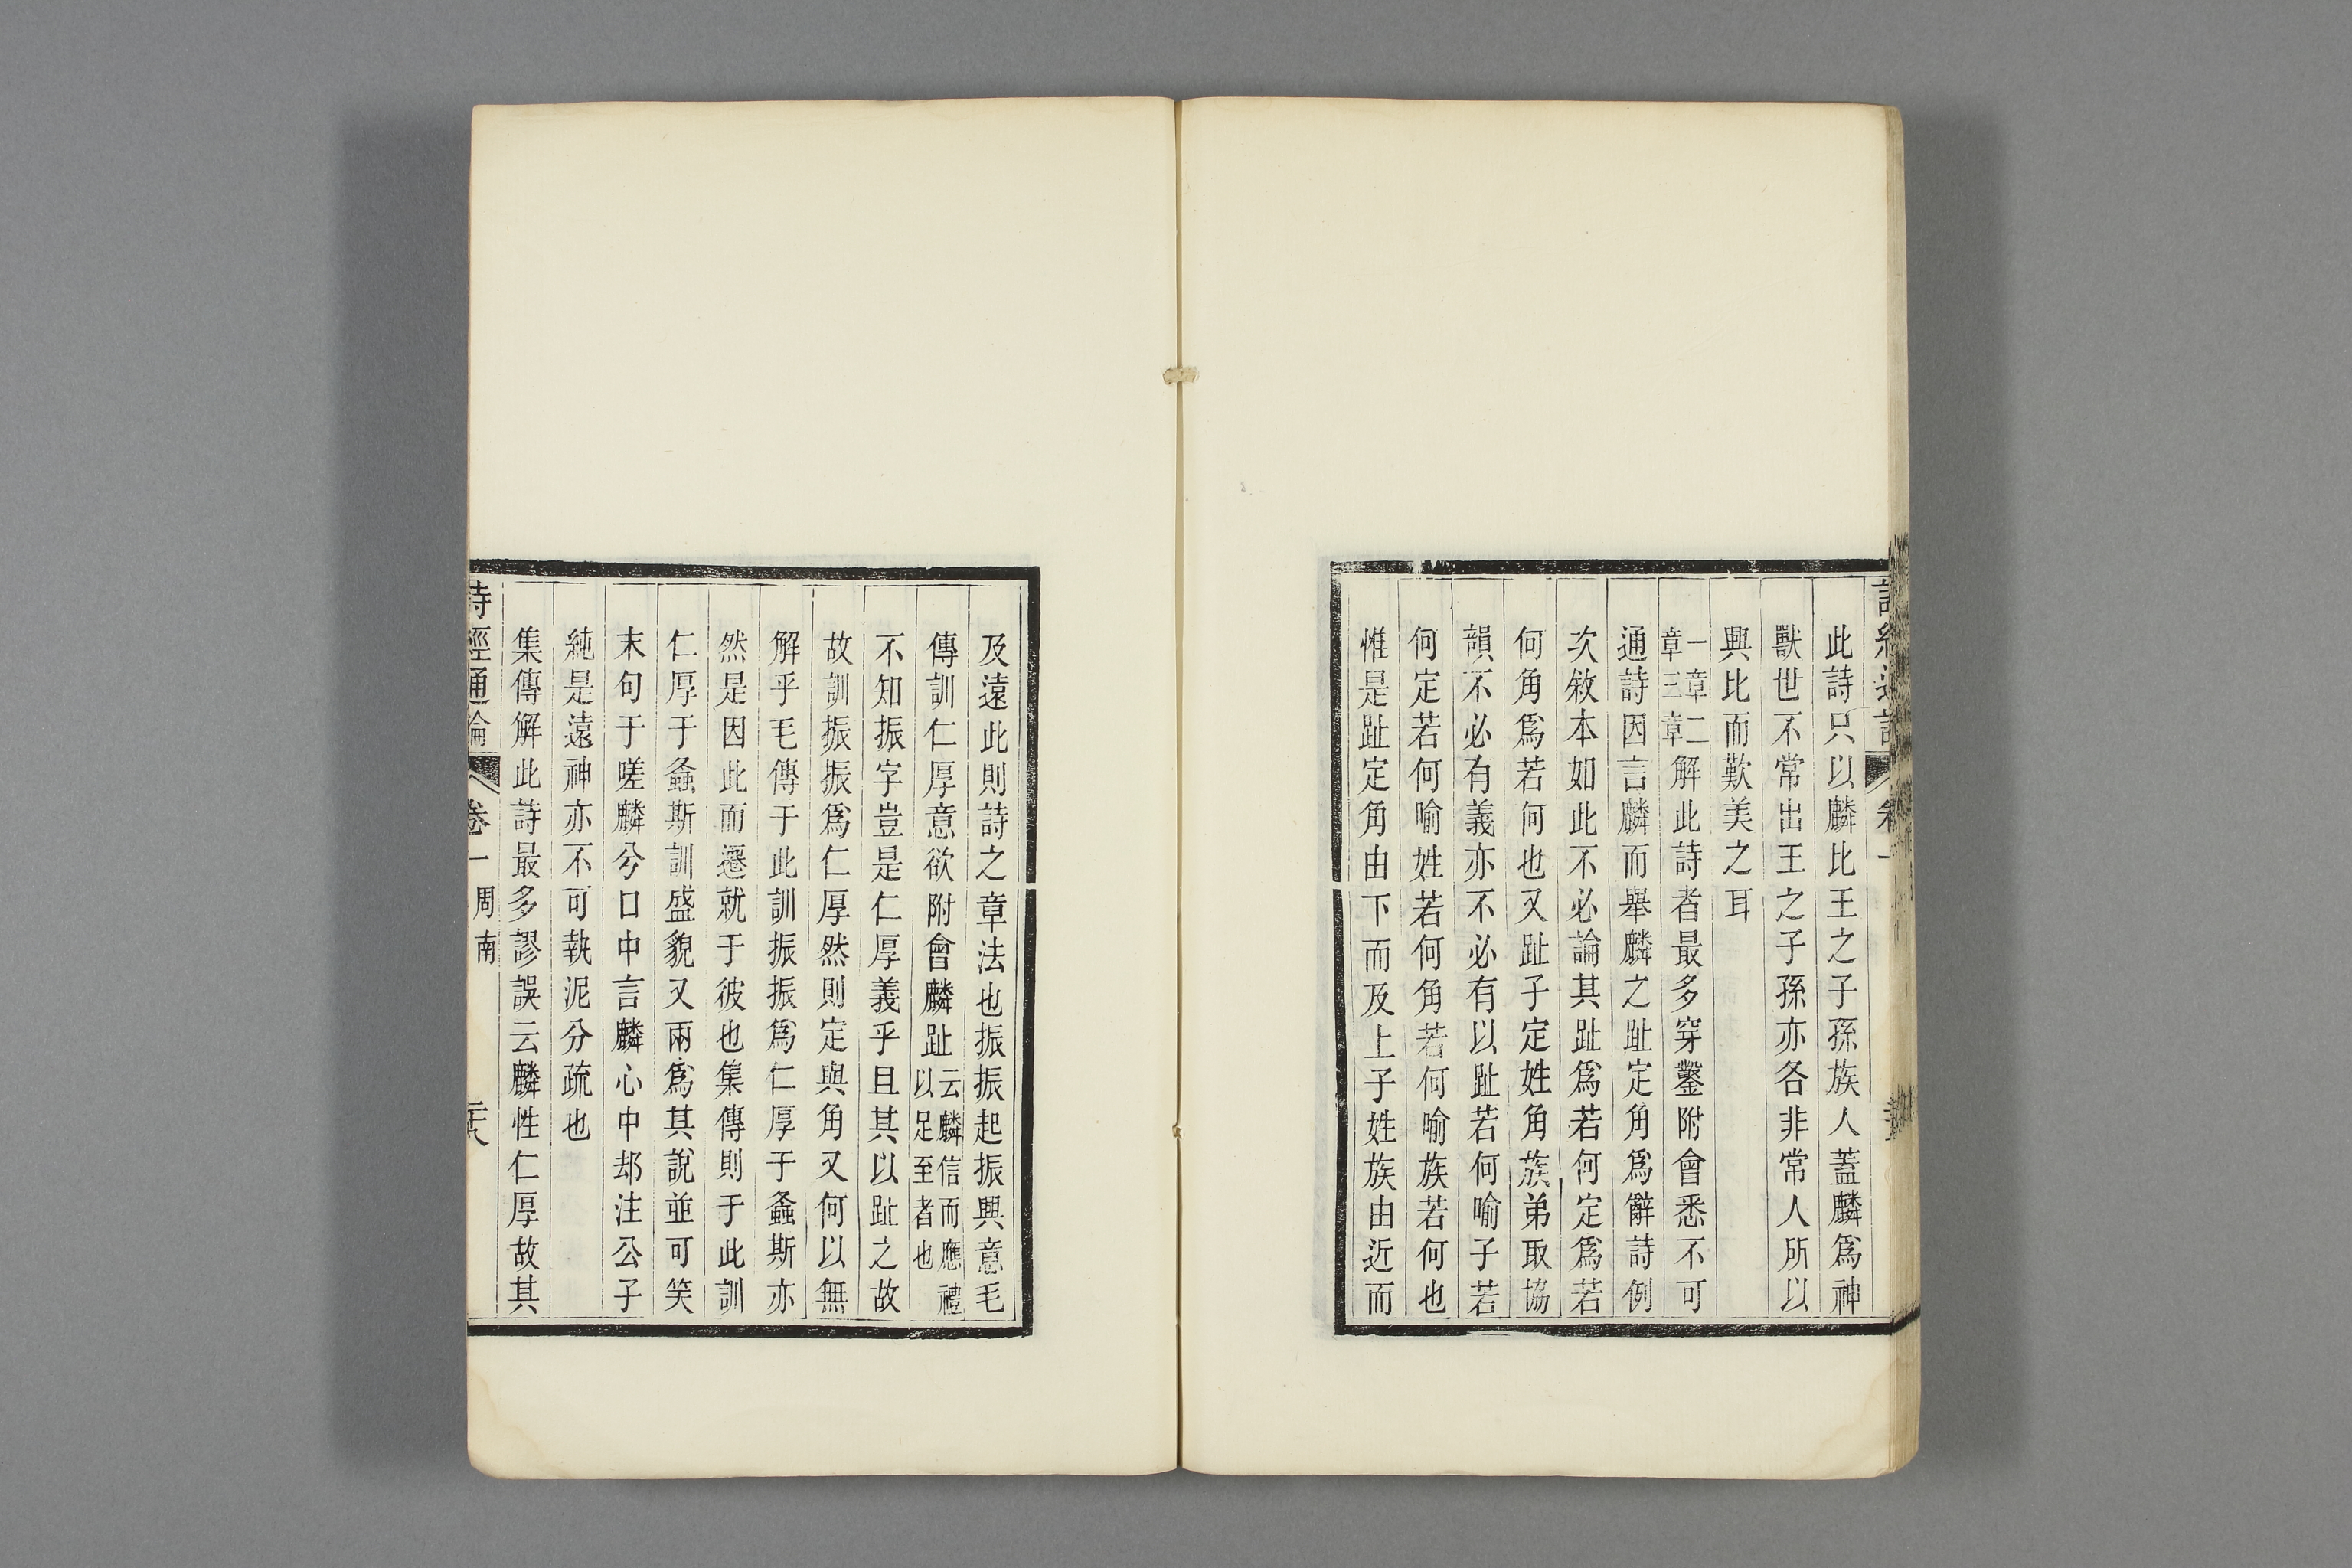 此詩只以麟比王之子孫族人蓋麟爲神
獸世不常出王之子孫亦各非常人所以
興比而歎美之耳
一章二
章三章解此詩者最多穿鑿附會悉不可
通詩因言麟而舉麟之趾定角爲辭詩例
次敘本如此不必論其趾爲若何定爲若
何角爲若何也又趾子定姓角族弟取協
韻不必有義亦不必有以趾若何喻子若
何定若何喻姓若何角若何喻族若何也
惟是趾定角由下而及上子姓族由近而
及遠此則詩之章法也振振起振興意毛
傳訓仁厚意欲附會麟趾云麟信而應禮
以足至者也
不知振字豈是仁厚義乎且其以趾之故
故訓振振爲仁厚然則定與角又何以無
解乎毛傳于此訓振振爲仁厚于螽斯亦
然是因此而遷就于彼也集傳則于此訓
仁厚于螽斯訓盛貌又兩爲其說並可笑
末句于嗟麟兮口中言麟心中却注公子
純是遠神亦不可執泥分疏也
集傳解此詩最多謬誤云麟性仁厚故其
詩經通論 卷一 周南